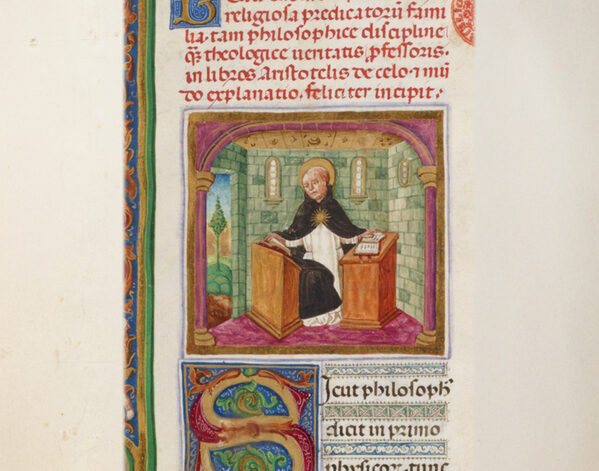 religiosa predicatorū fami
lia. tam philosophice discipline
q̄ theologice ueritatis ꝓfessoris.
in libros Aristotelis de celo et mū
do explanatio. feliciter incipit.
Sicut philosoph᾽
dicit in primo
physicor. tunc